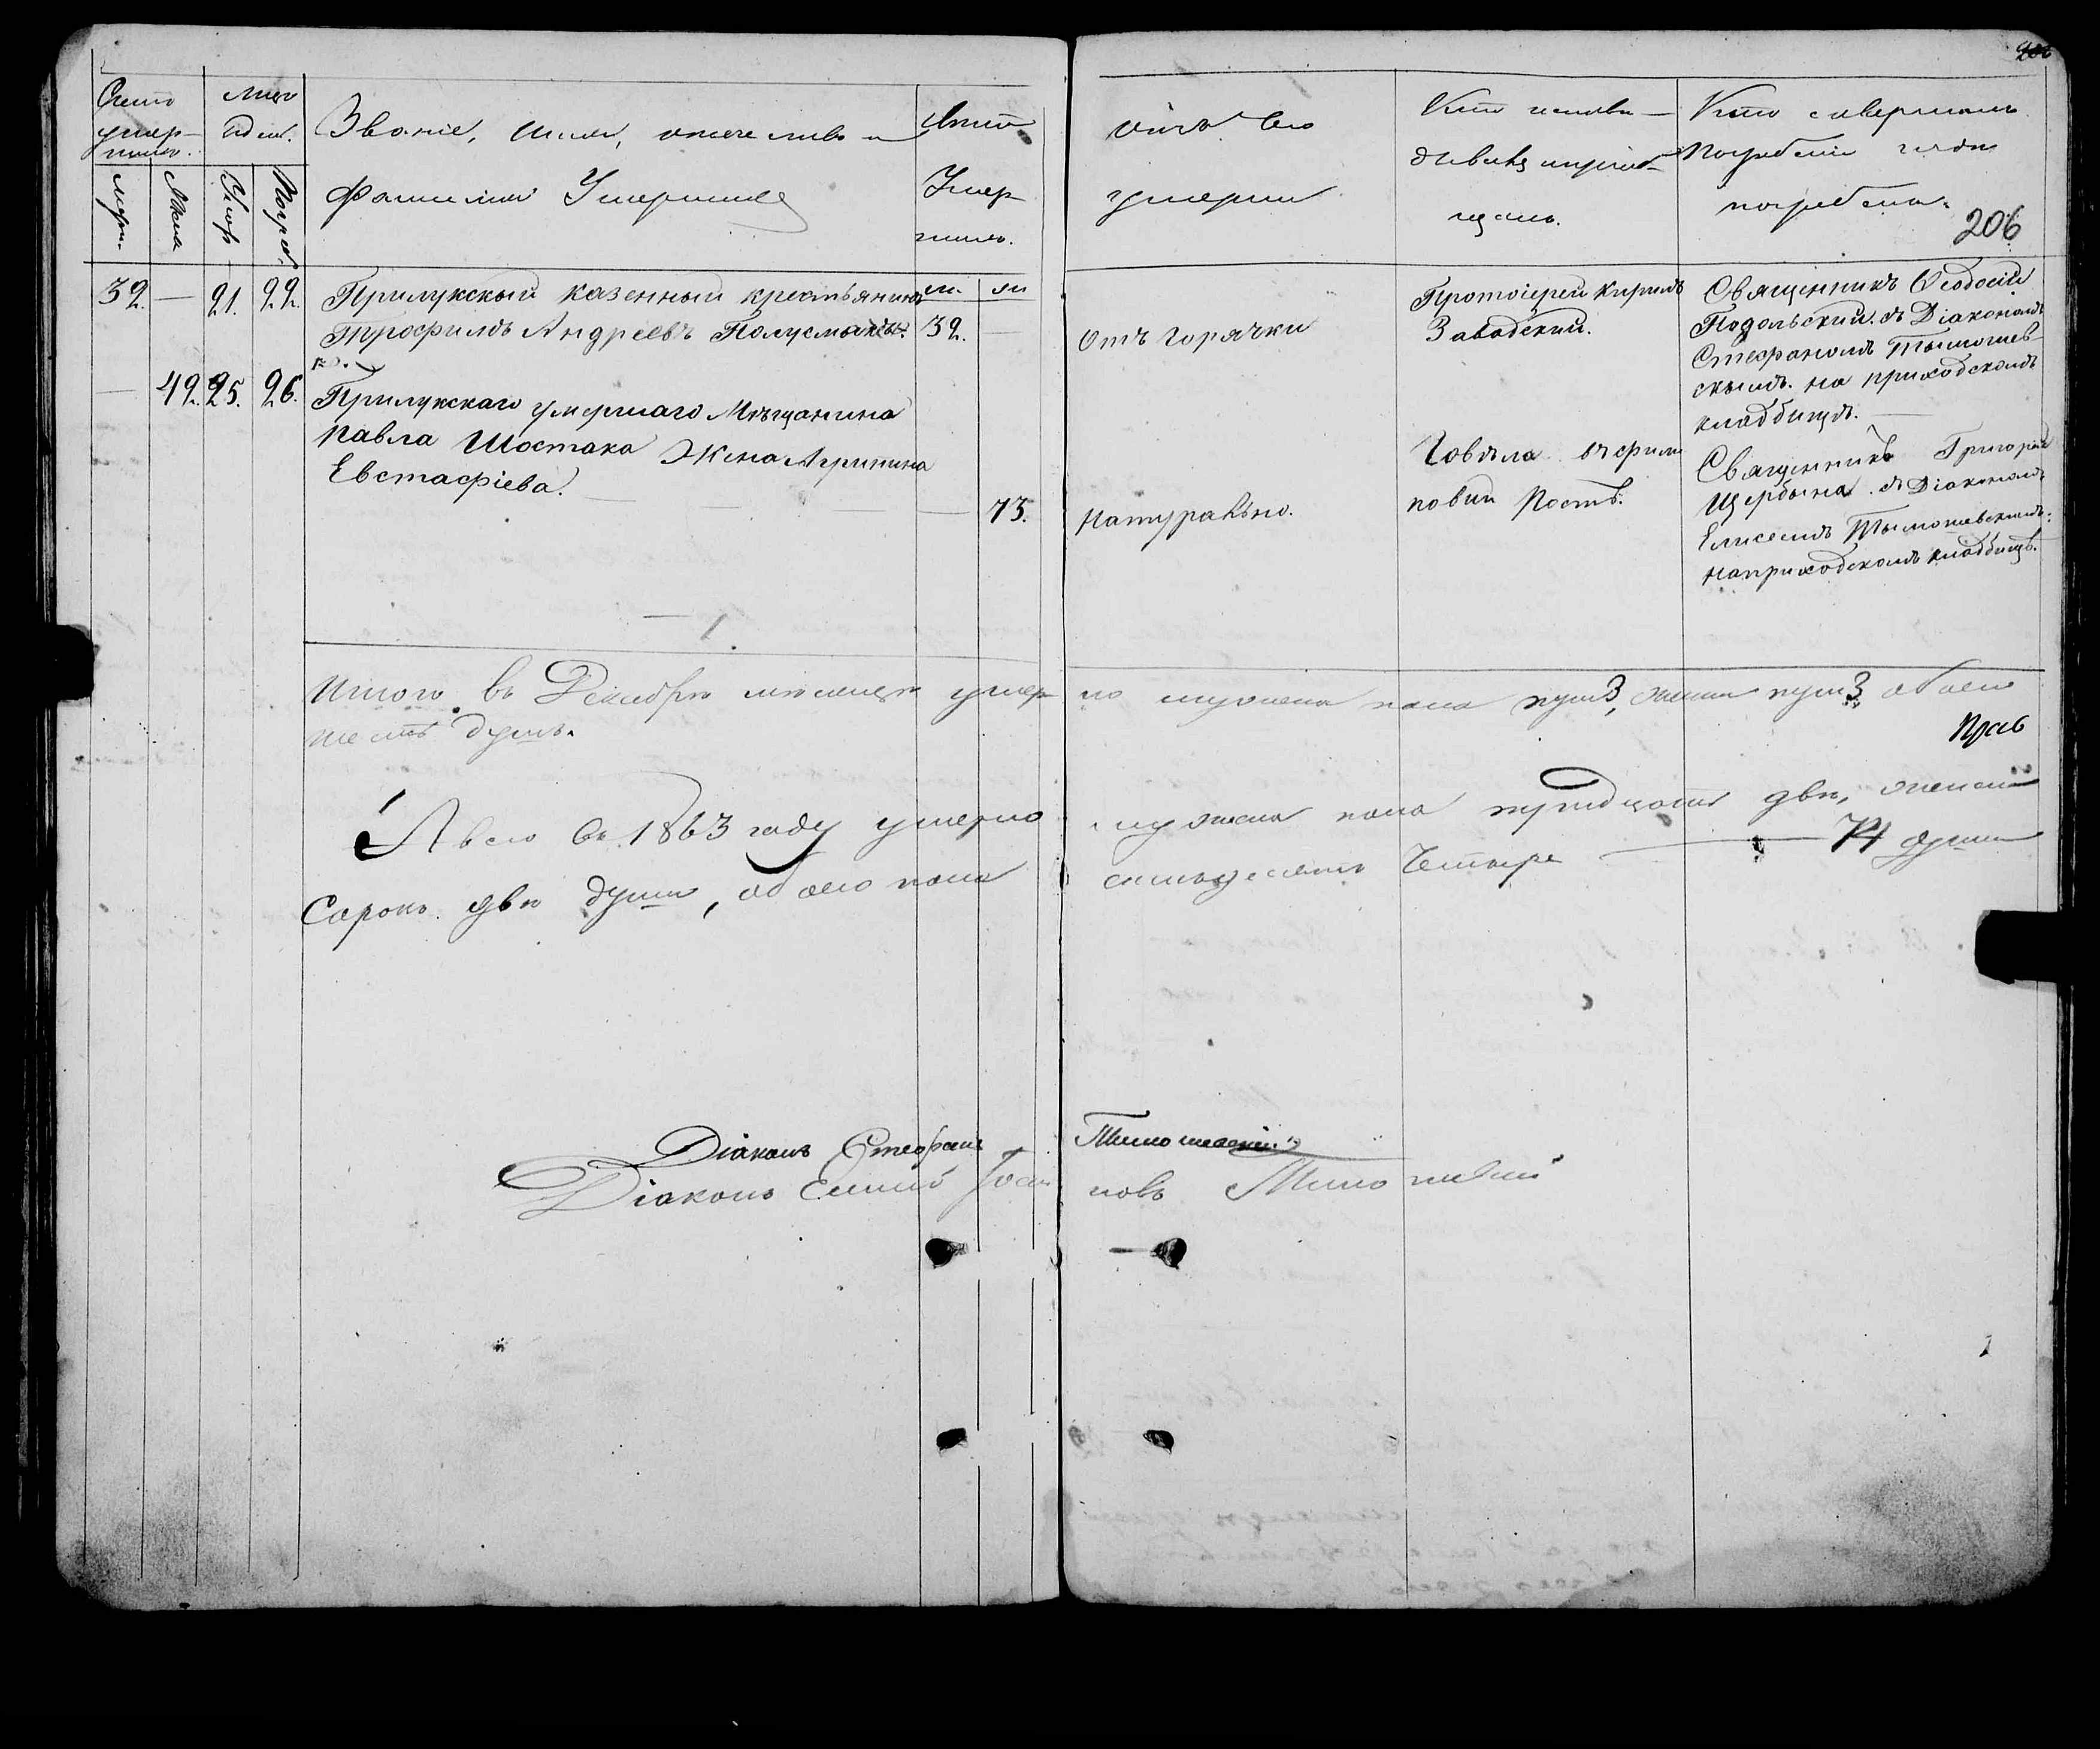 206
Счетъ умер-шихъ.
Мцъ и дни.
Званіе, имя, отчество и
фамилія Умершихъ
Лѣта
Умер-
шихъ.
Мужс.
Жена
Умер.
Погреб.
м.
ж
отъ чего
умерли
Кто исповѣ-
дывалъ и пріоб-
щалъ.
Кто совершалъ
Погребеніе и гдѣ
погребены.
206
32. — 21. 22. Прилукскый казенный крестьянинъ
Трофимъ Андреевъ Полусмак
ко.
32. —
отъ горячки
Протоіерей Кирилъ
Завадскій.
Священникъ Ѳеодосій
Подольскій. съ Діакономъ
Стефаномъ Тымошев-
скымъ. на приходскомъ
кладбищѣ. —
— 42. 25. 26. Прилукскаго умершаго Мѣщанина
Павла Шостака Жена Агрипина
Евстафіева. —
— 73.
Натурально.
Говѣла въ Филип
повий Постъ.
Священникъ Григорій
Щербына. съ Діакономъ
Елисеемъ Тымошевскимъ.
на приходскомъ кладбищѣ.
Итого въ Декабрѣ мѣсяцѣ умер ло мужеска пола душъ 3, женска душъ 3, обоего
шесть душъ.
Прав
А всего въ 1863 году умерло мужеска пола тридцать двѣ, женска
Сорокъ двѣ души, обоего пола семьдесятъ четыре — 74 души
Діаконъ Стефанъ Тимошевскій
Діаконъ Елисей Тимошевскій